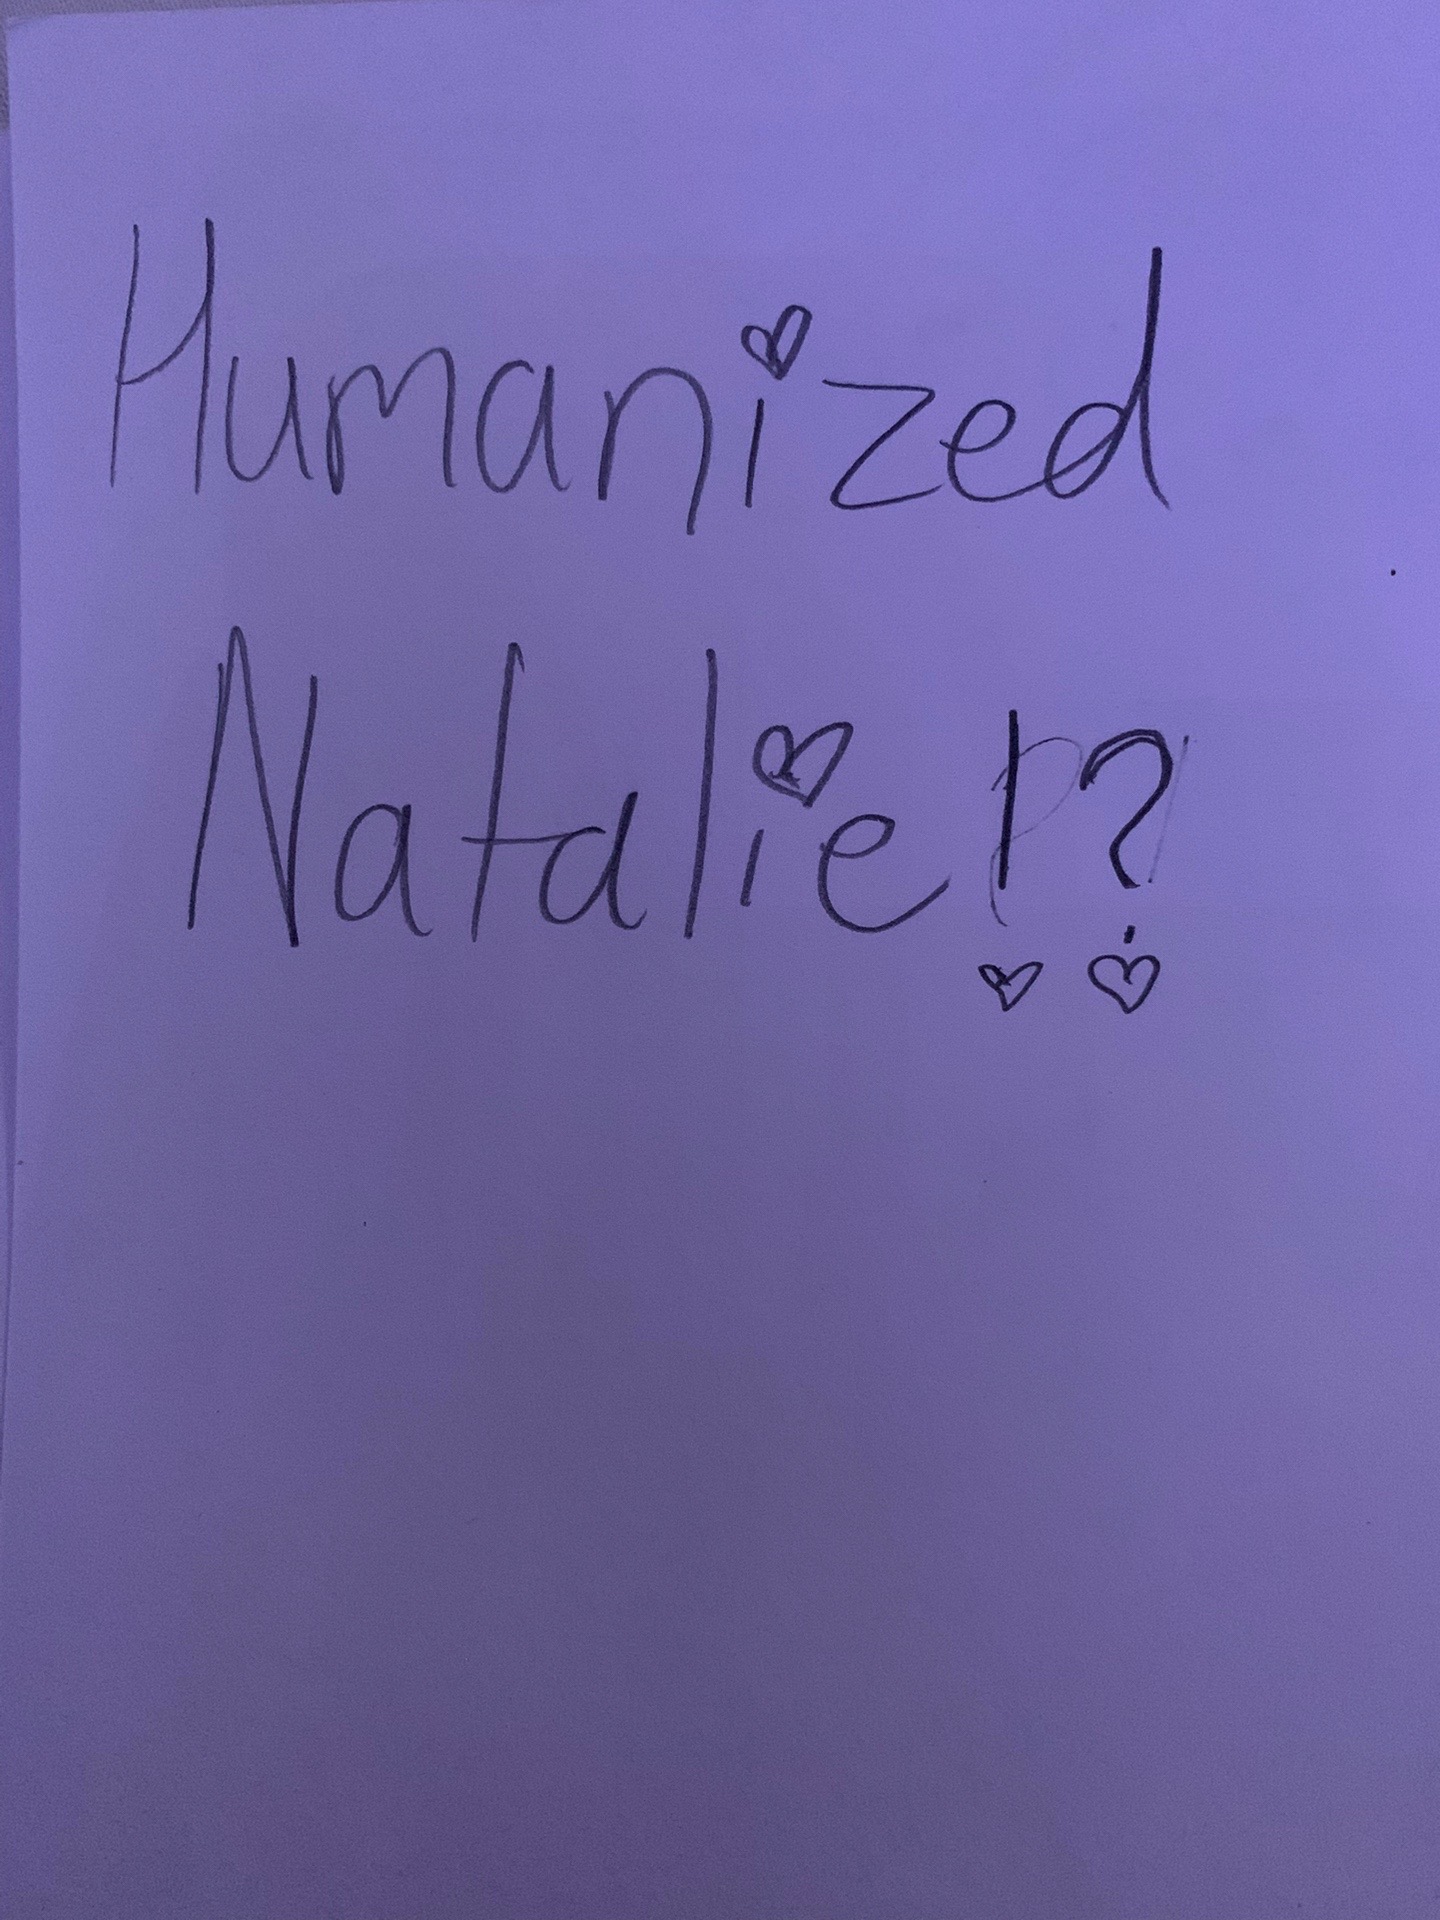 Humanized
Natalie!?